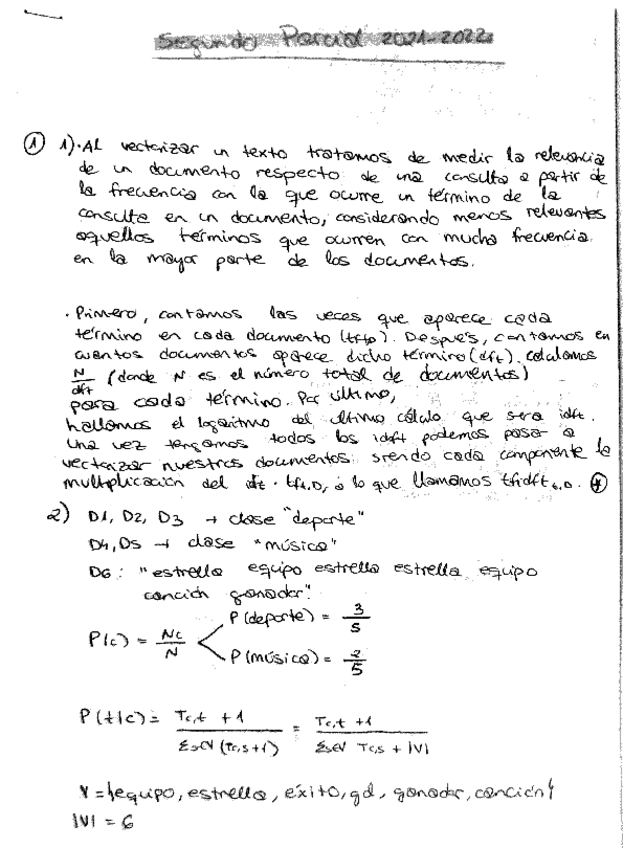 Segundo Parcial 2021-2022
① 1)· AL vectorizar un texto tratamos de medir la relevancia
de un documento respecto de una consulta a partir de
la frecuencia con la que ocurre un término de la
consulta en un documento, considerando menos relevantes
aquellos términos que ocurren con mucha frecuencia
en la mayor parte de los documentos.
· Primero, contamos las veces que aparece cada
término en cada documento (tft,D). Después, contamos en
cuantos documentos aparece dicho término (dft). calculamos
N/dft (donde N es el número total de documentos)
para cada término. Por último,
hallamos el logaritmo del último cálculo que sera idft.
Una vez tengamos todos los idft podemos pasar a
vectorizar nuestros documentos siendo cada componente la
multiplicación del idft · tft,D, a lo que llamamos tfidft,D.
2) D1, D2, D3 → clase "deporte"
D4, D5 → clase "música"
D6: "estrella equipo estrella estrella equipo
canción ganador"
P(c) = Nc/N
P(deporte) = 3/5
P(música) = 2/5
P(t|c) = Tc,t + 1 / Σs∈V (Tc,s + 1) = Tc,t + 1 / Σs∈V Tc,s + |V|
V = {equipo, estrella, éxito, gol, ganador, canción}
|V| = 6